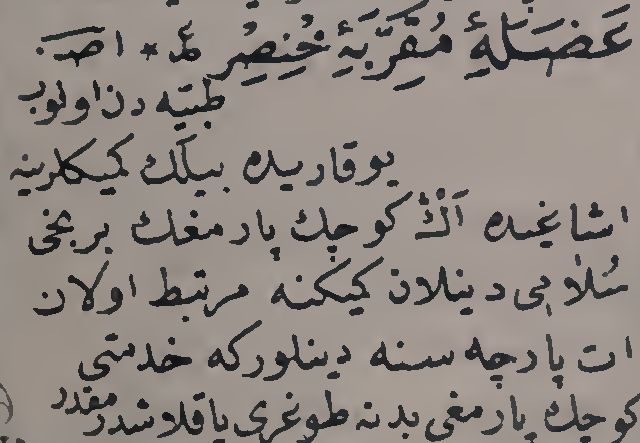 عَضَلَهٔ مُقَرِّبَهٔ خُنِصِرْ طٓ * اص.
طبیه دن اولوب
یوقاریده بیلك كمیكلرینه
اشاغیده اَڭ كوچك پارمغك برنجی
سُلامی دینلان كمیكنه مرتبط اولان
ات پارچه سنه دینلوركه خدمتی
كوچك پارمغی بدنه طوغری یاقلاشدرمقدر